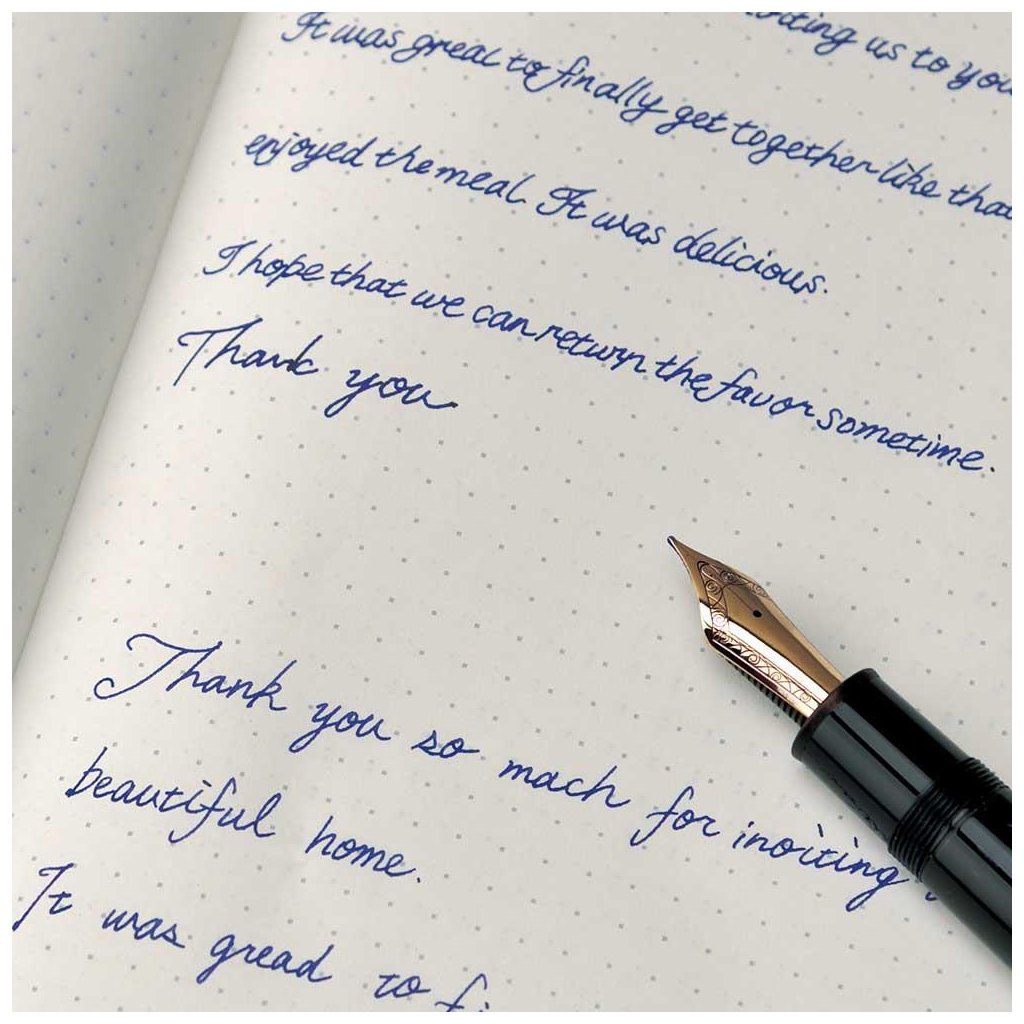 inviting us to you
It was great to finally get together like that
enjoyed the meal. It was delicious.
I hope that we can return the favor sometime.
Thank you
Thank you so mach for inviting
beautiful home.
It was gread to fi